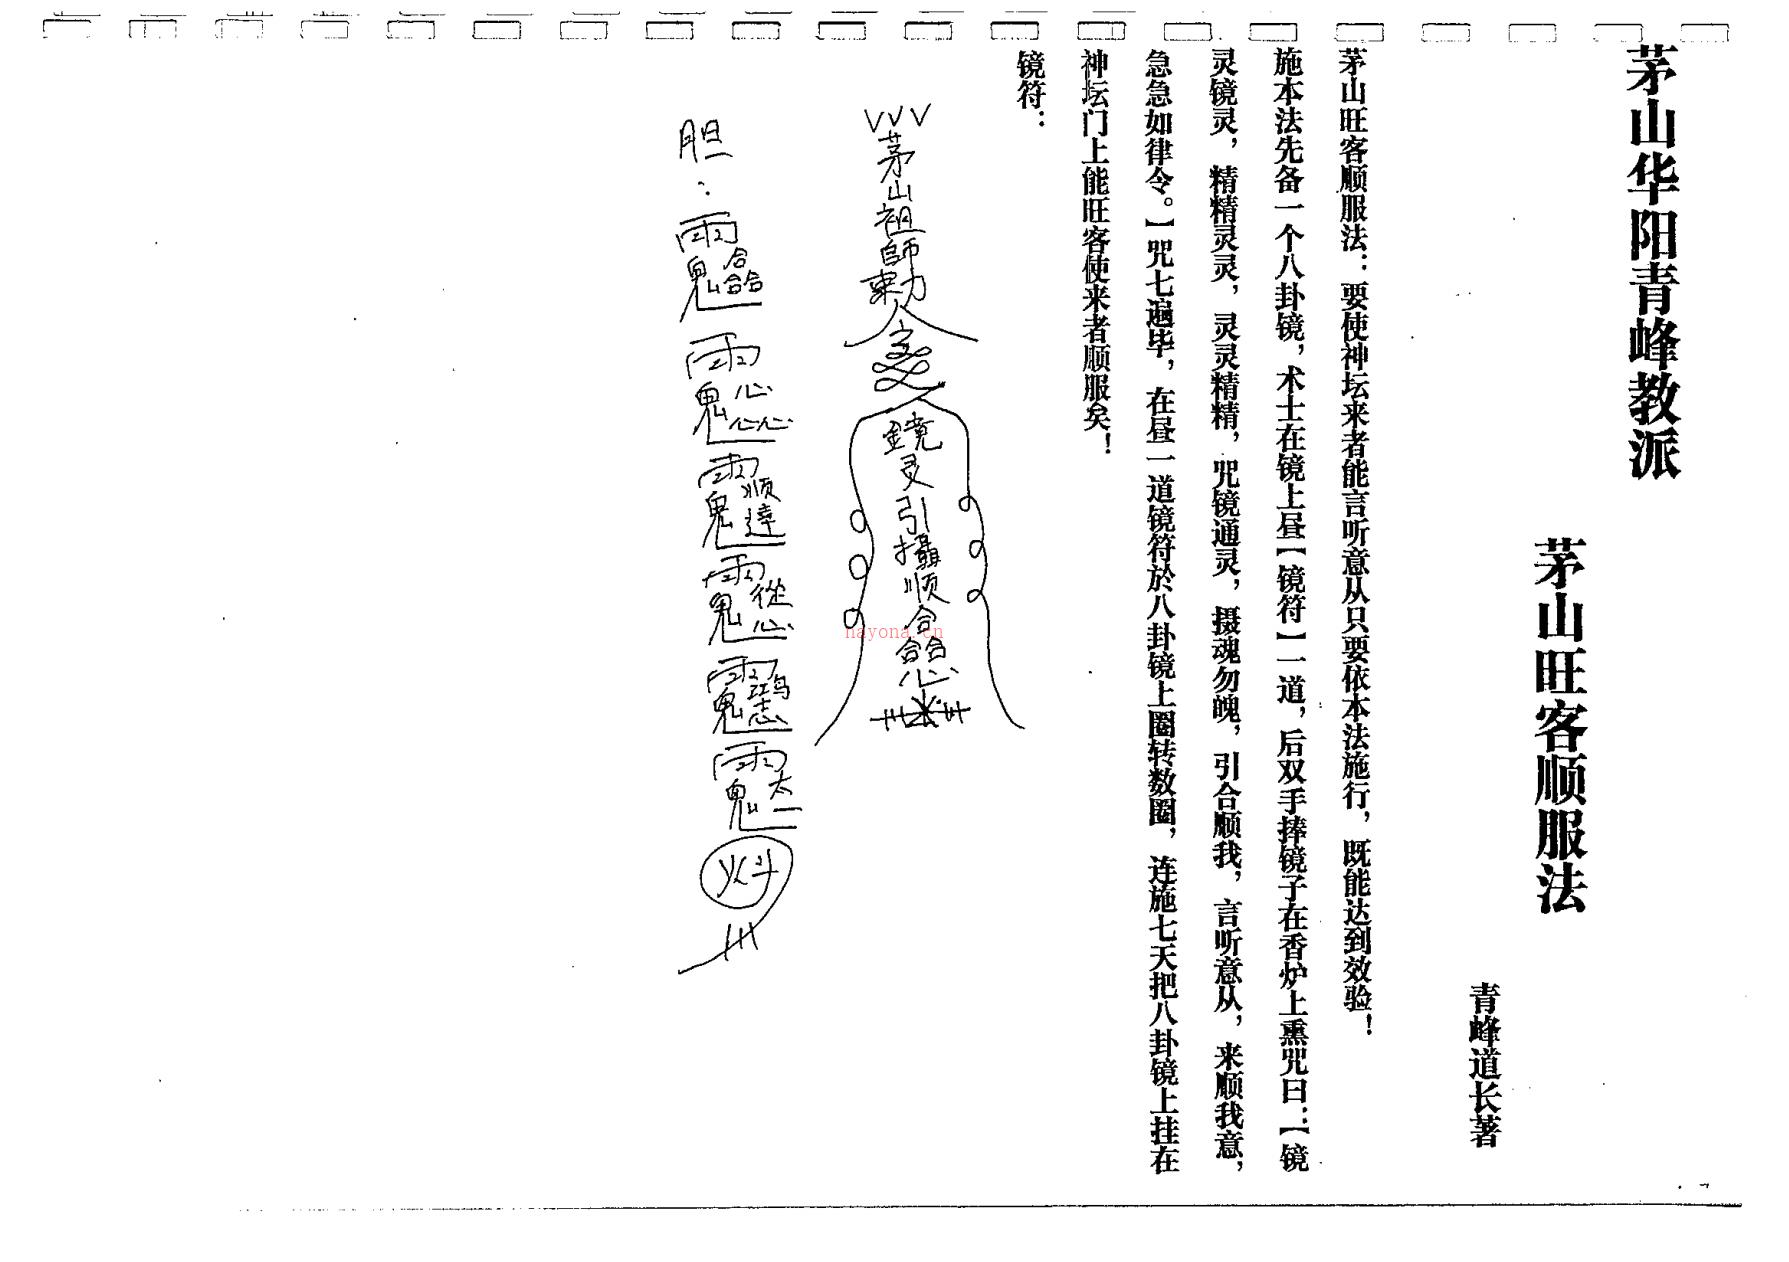 茅山华阳青峰教派
茅山旺客顺服法
青峰道长著
茅山旺客顺服法：要使神坛来者能言听意从只要依本法施行，既能达到效验！
施本法先备一个八卦镜，术士在镜上昼【镜符】一道，后双手捧镜子在香炉上熏咒曰：【镜
灵镜灵，精精灵灵，灵灵精精，咒镜通灵，摄魂勿魄，引合顺我，言听意从，来顺我意，
急急如律令。】咒七遍毕，在昼一道镜符於八卦镜上圈转数圈，连施七天把八卦镜上挂在
神坛门上能旺客使来者顺服矣！
镜符：
茅山祖師勅
鏡灵引攝順合合合心
胆：
nayona.cn